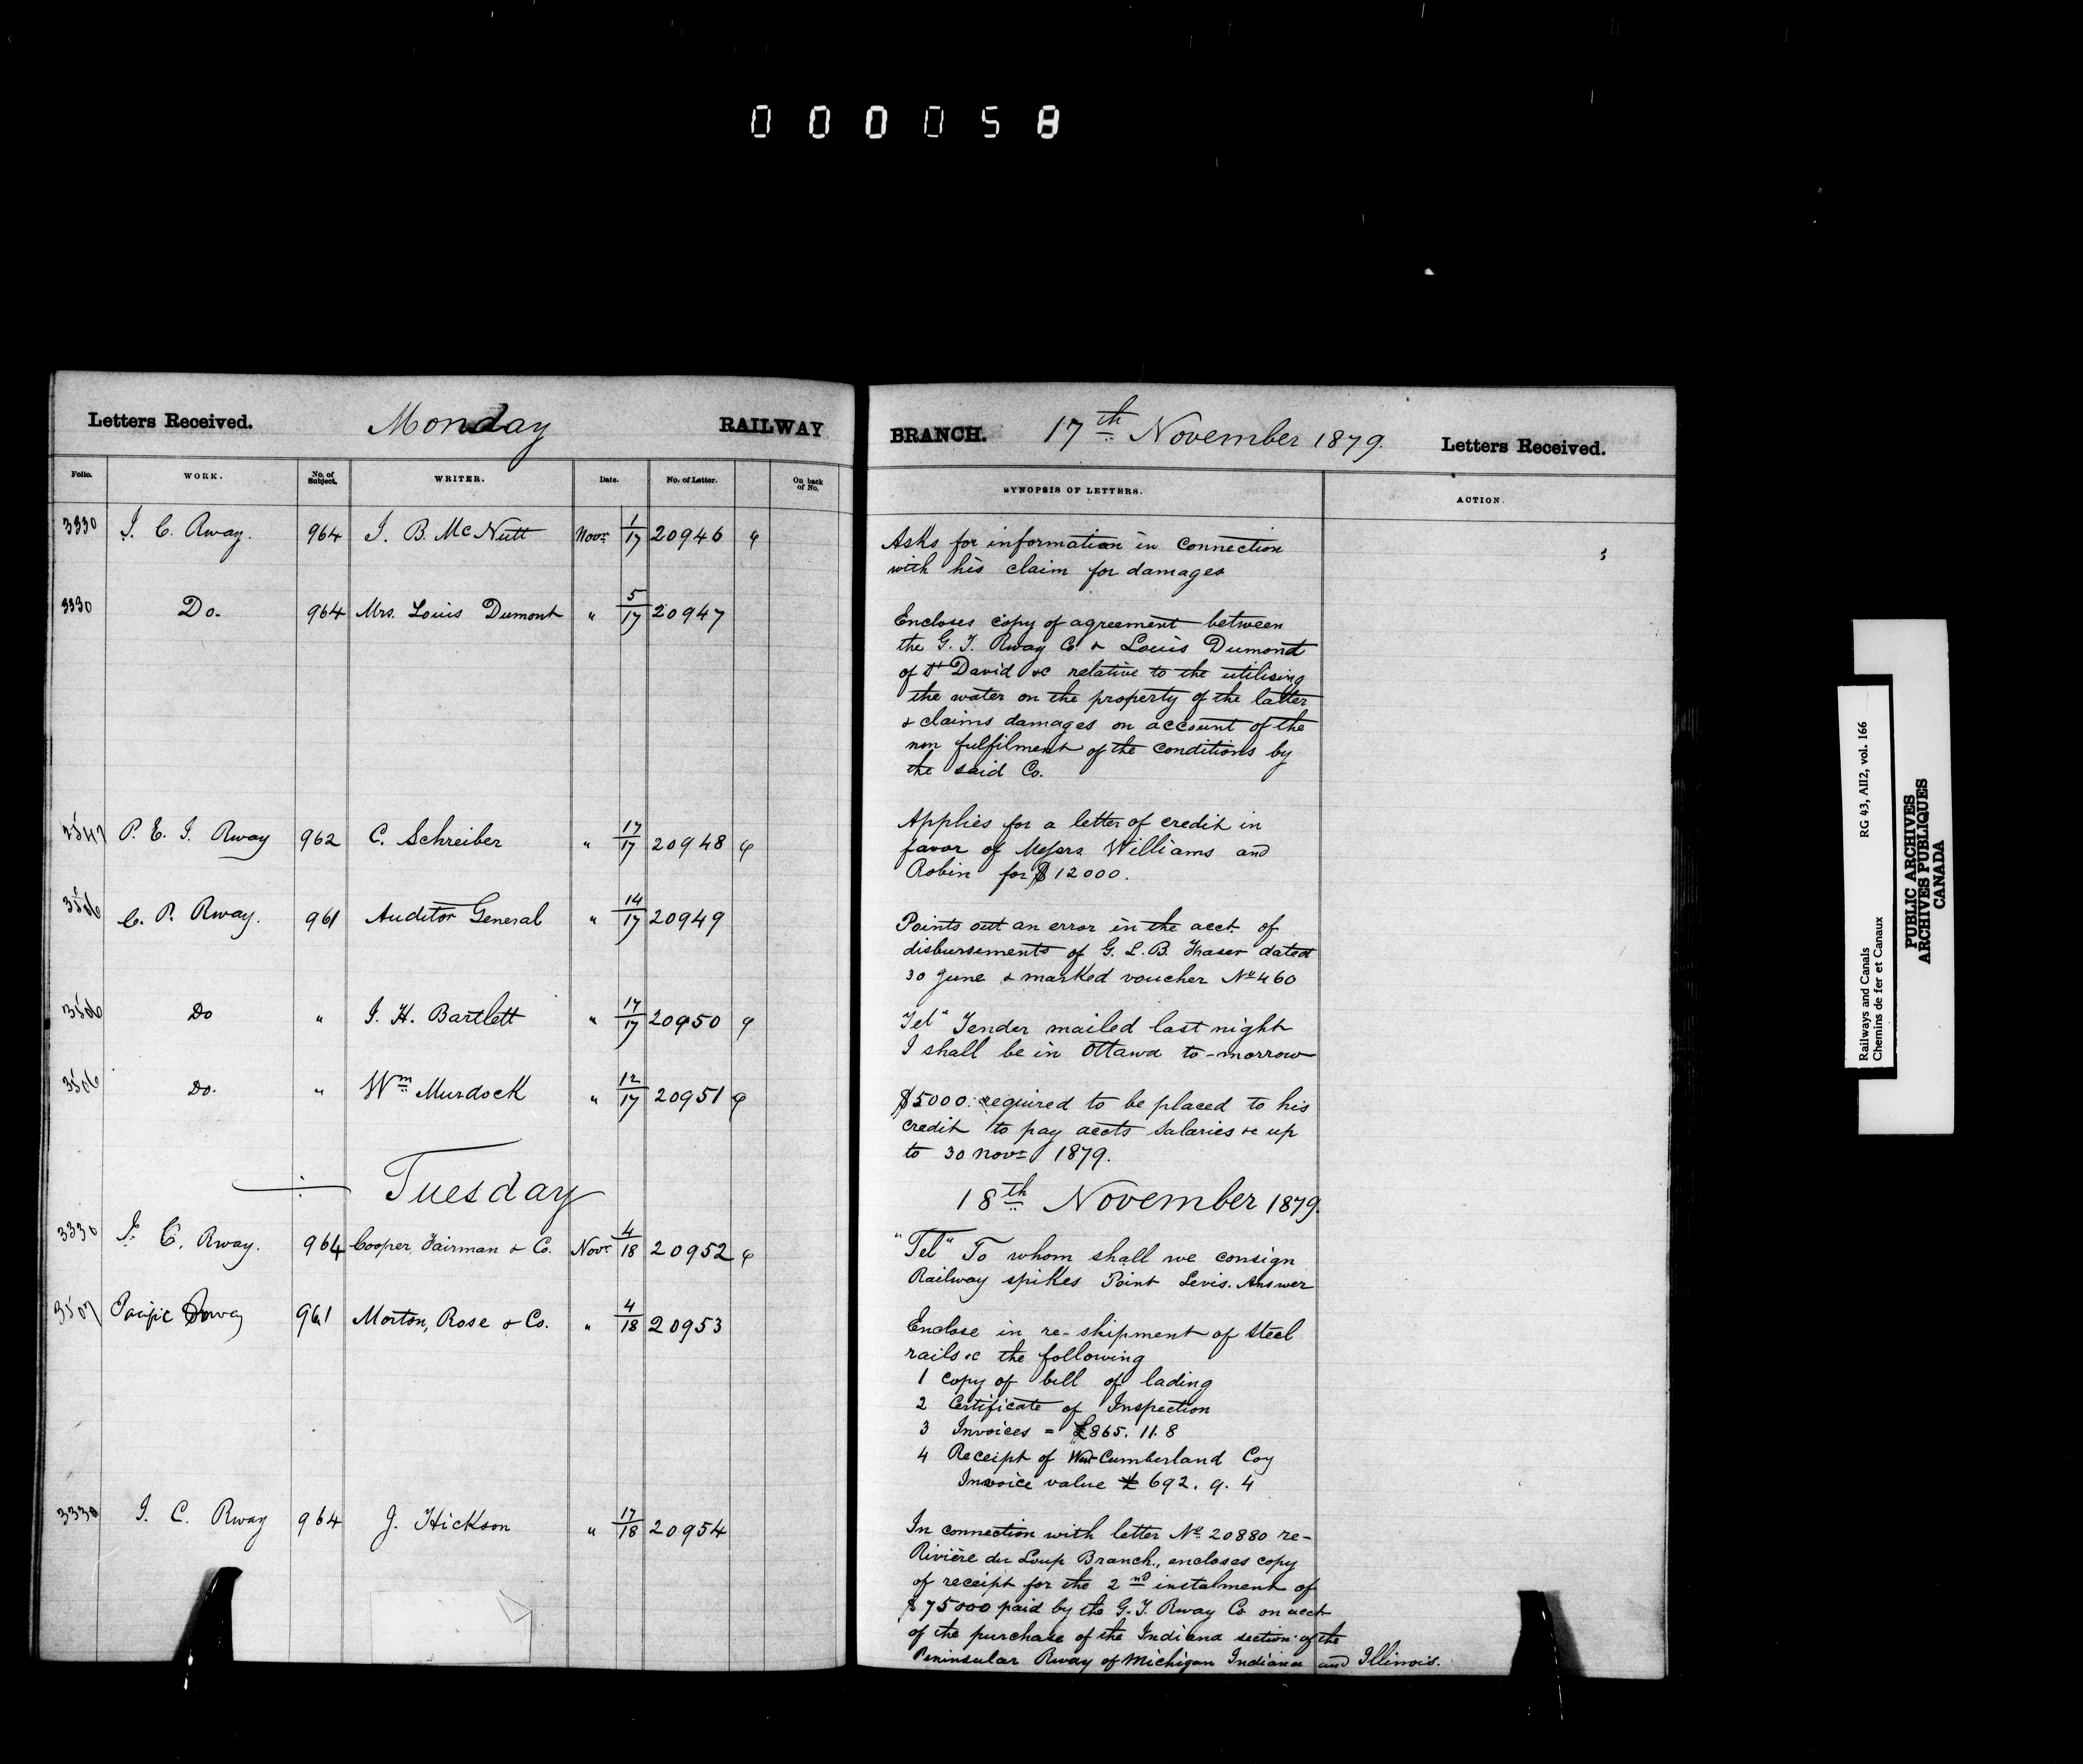 000058
Letters Received. Monday RAILWAY
Folio. WORK. No. of Subject. WRITER. Date. No. of Letter. On back of No.
3330 I. C. Rway. 964 I. B. McNutt Novr 1/17 20946
3330 Do. 964 Mrs. Louis Dumont " 5/17 20947
P. E. I. Rway 962 C. Schreiber " 17/17 20948
3506 C. P. Rway. 961 Auditor General " 14/17 20949
3506 Do " I. H. Bartlett " 17/17 20950
3506 Do. " Wm Murdock " 12/17 20951
Tuesday
3330 I. C. Rway. 964 Cooper, Fairman & Co. Novr 4/18 20952
3507 Pacific Rway 961 Morton, Rose & Co. " 4/18 20953
3330 I. C. Rway 964 J. Hickson " 17/18 20954
BRANCH. 17th November 1879. Letters Received.
SYNOPSIS OF LETTERS. ACTION.
Asks for information in connection
with his claim for damages
Encloses copy of agreement between
the G. T. Rway Co & Louis Dumond
of St David &c relative to the utilising
the water on the property of the latter
& claims damages on account of the
non fulfilment of the conditions by
the said Co.
Applies for a letter of credit in
favor of Messrs Williams and
Robin for $12000.
Points out an error in the acct. of
disbursements of G. L. B. Fraser dated
30 June & marked voucher No 460
Tel" Tender mailed last night
I shall be in Ottawa to-morrow
$5000. required to be placed to his
credit to pay accts salaries &c up
to 30 Novr 1879.
18th November 1879.
"Tel" To whom shall we consign
Railway spikes Point Levis. Answer
Enclose in re-shipment of steel
rails &c the following
1 copy of bill of lading
2 Certificate of Inspection
3 Invoices = £865. 11. 8
4 Receipt of West Cumberland Coy
Invoice value £ 692. 9. 4
In connection with letter No 20880 re-
Rivière du Loup Branch., encloses copy
of receipt for the 2nd instalment of
$75000 paid by the G. T. Rway Co. on acct
of the purchase of the Indiana section of the
Peninsular Rway of Michigan Indiana and Illinois.
Railways and Canals RG 43, AII2, vol. 166
Chemins de fer et Canaux
PUBLIC ARCHIVES
ARCHIVES PUBLIQUES
CANADA